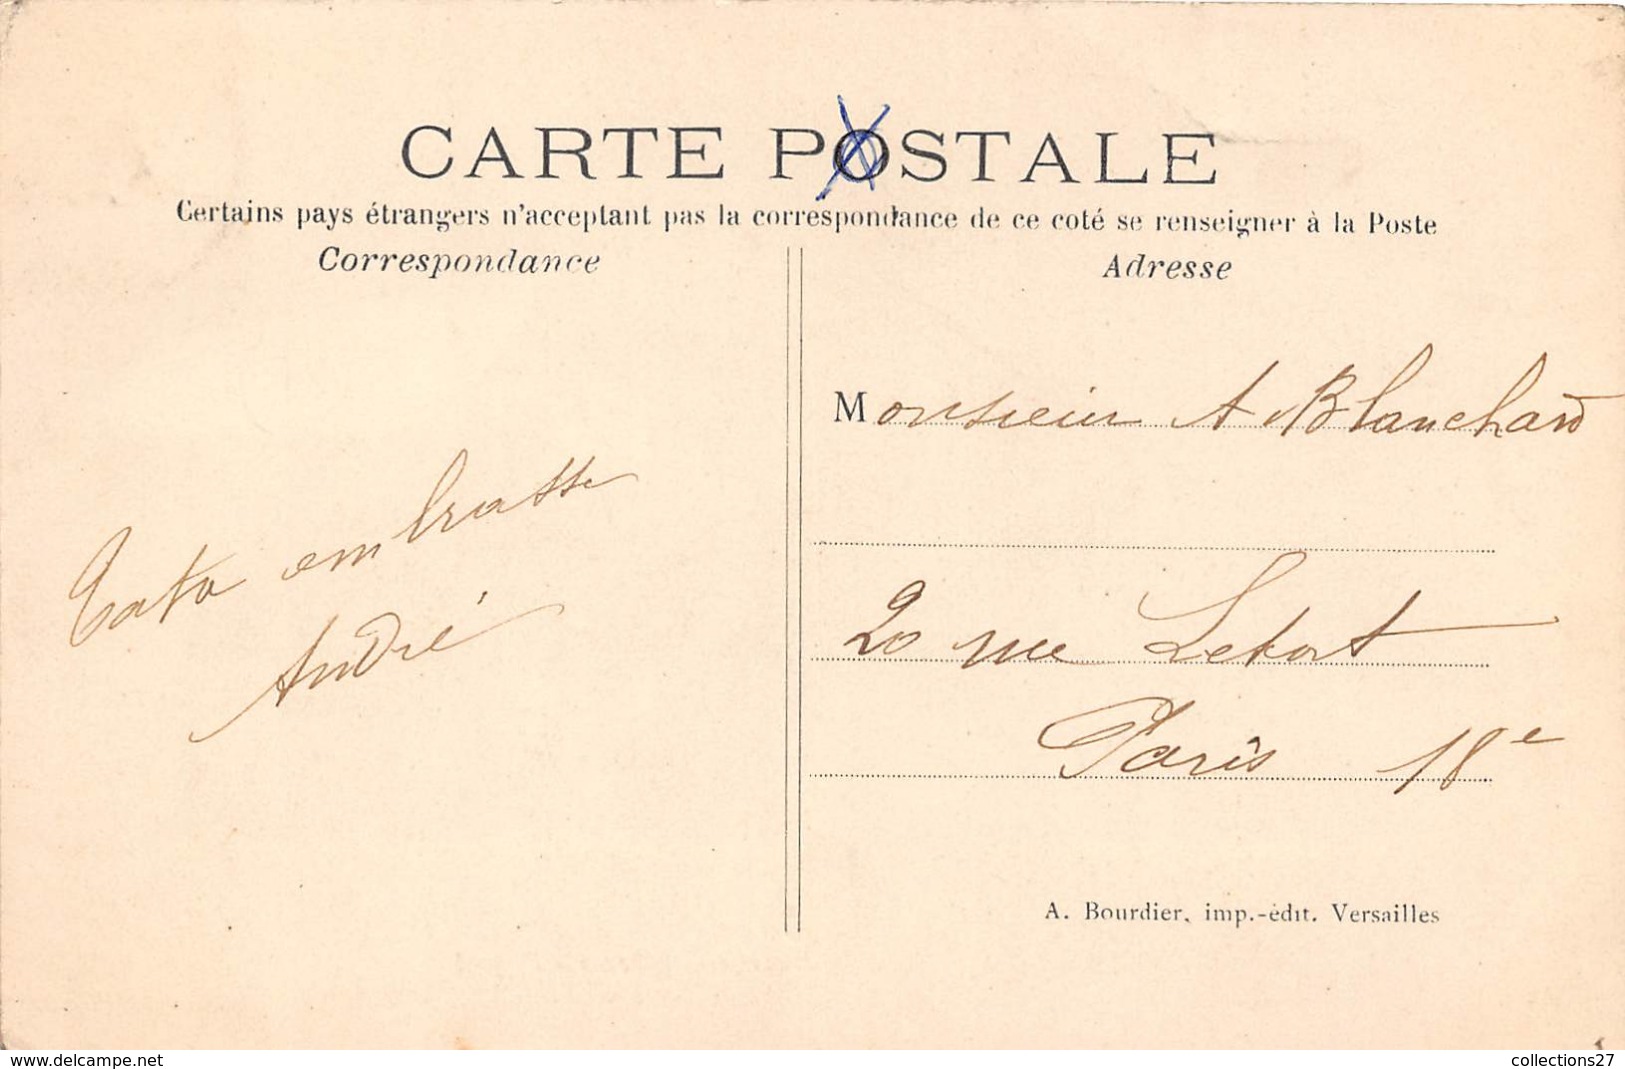 CARTE POSTALE
Certains pays étrangers n'acceptant pas la correspondance de ce coté se renseigner à la Poste
Correspondance
Adresse
Tata embrasse
André
Monsieur A Blanchard
20 rue Letort
Paris 18e
A. Bourdier, imp.-édit. Versailles
www.delcampe.net
collections27